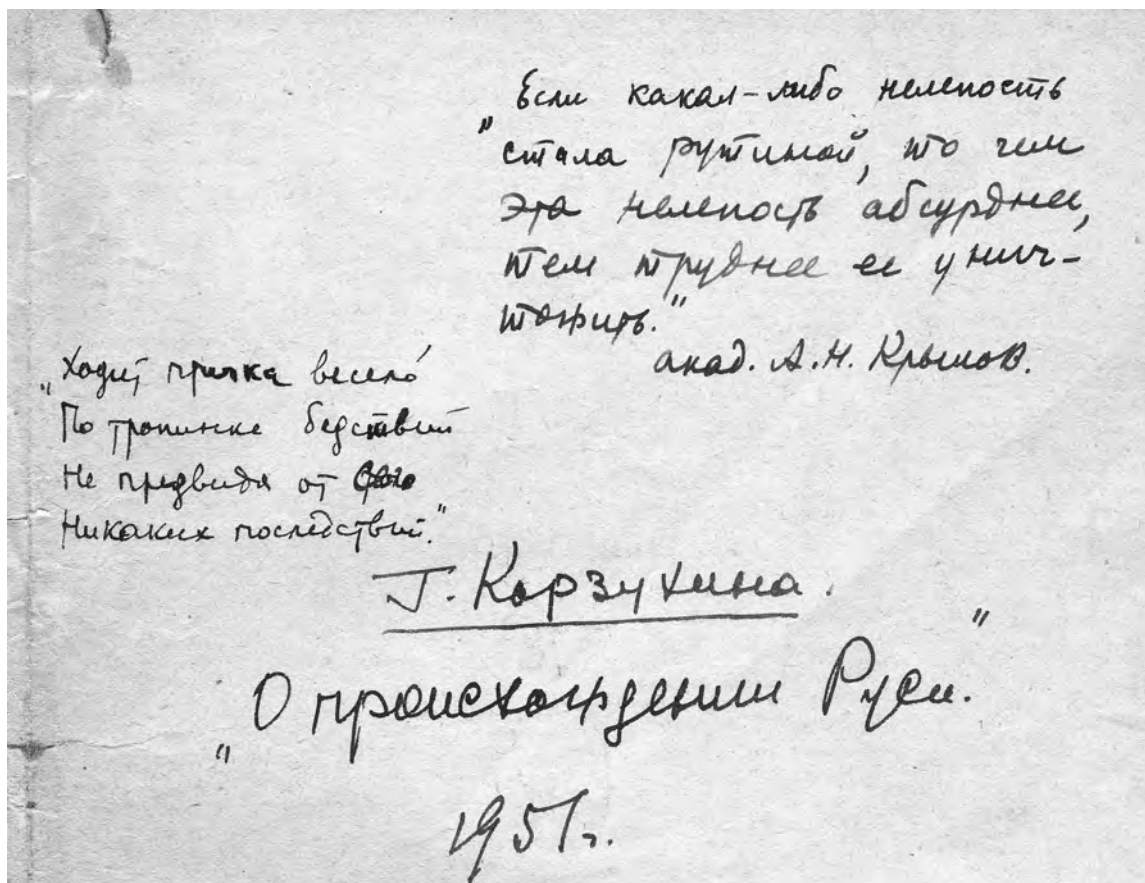 "Если какая-либо нелепость
стала рутиной, то чем
эта нелепость абсурднее,
тем труднее ее унич-
тожить."
акад. А.Н. Крылов.
"Ходит птичка весело
По тропинке бедствий
Не предвидя от сего
Никаких последствий."
Г. Корзухина.
"О происхождении Руси."
1951г.